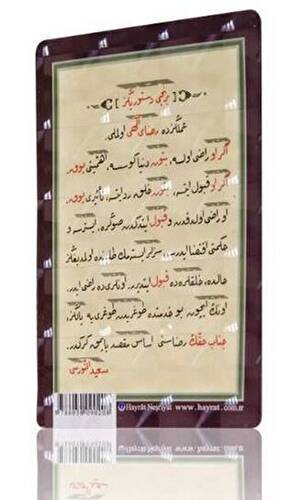 [ برنجی دستوریڭز ]
عملڭزده رضای الهی اولملی.
اگر او راضی اولسه، بتون دنیا كوسسه، اهمیتی یوق.
اگر او قبول ایتسه، بتون خلق رد ایتسه، تأثیری یوق.
او راضی اولدقدن و قبول ایتدكدن صوڭره، ایسترسه و
حكمتی اقتضا ایدرسه، سزلر ایستمك طلبنده اولمدیغڭز
حالده، خلقلره ده قبول ایتدیرر، اونلری ده راضی ایدر.
اونڭ ایچون، بو خدمتده طوغریدن طوغری یه یالڭز،
جناب حقڭ رضاسنی اساس مقصد یاپمق گركدر.
سعید النورسی
Hayrât Neşriyat www.hayrat.com.tr